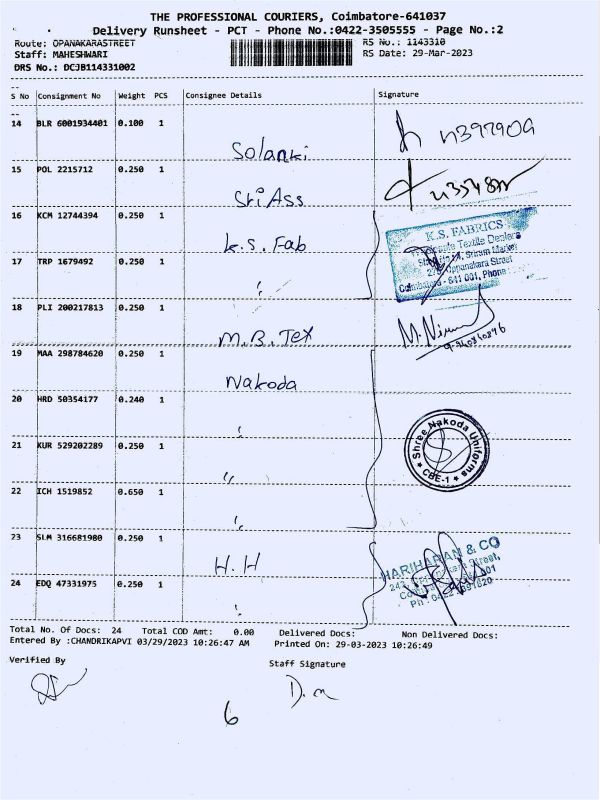 THE PROFESSIONAL COURIERS, Coimbatore-641037
Delivery Runsheet - PCT - Phone No.:0422-3505555 - Page No.:2
Route: OPANAKARASTREET
RS No.: 1143310
Staff: MAHESHWARI
RS Date: 29-Mar-2023
DRS No.: DCJB114331002
S No Consignment No Weight PCS Consignee Details Signature
14 BLR 6001934401 0.100 1 Solanki
15 POL 2215712 0.250 1 Sri Ass
16 KCM 12744394 0.250 1 K.S. Fab
K.S. FABRICS
Textile Dealers
Sriram Market
Oppanakara Street
Coimbatore - 641 001, Phone
17 TRP 1679492 0.250 1 "
18 PLI 200217813 0.250 1 M.B. Tex
19 MAA 298784620 0.250 1 Nakoda
20 HRD 50354177 0.240 1 "
21 KUR 529202289 0.250 1 "
Shree Nakoda Uniforms
★ CBE-1 ★
22 ICH 1519852 0.650 1 "
23 SLM 316681980 0.250 1 H.H
HARIHARAN & CO
24 EDQ 47331975 0.250 1 "
Total No. Of Docs: 24 Total COD Amt: 0.00 Delivered Docs: Non Delivered Docs:
Entered By :CHANDRIKAPVI 03/29/2023 10:26:47 AM Printed On: 29-03-2023 10:26:49
Verified By
Staff Signature
6